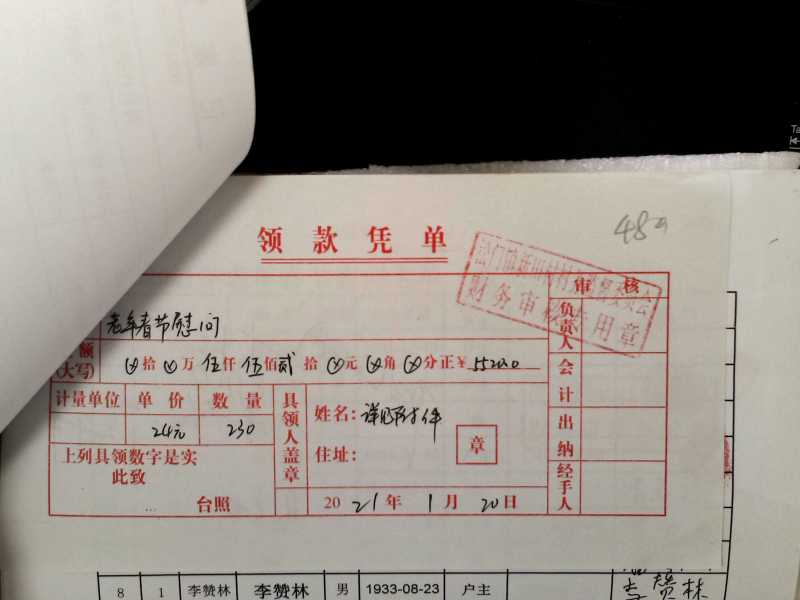 48
领款凭单
松门镇新川村村务监督委员会
财务审核专用章
审核
老年春节慰问
额
(大写)
⊗拾⊗万伍仟伍佰贰拾⊗元⊗角⊗分正¥5520.0
计量单位 单价 数量
24元 230
上列具领数字是实
此致
台照
具领人盖章
姓名:详见附件
住址:
章
2021年1月20日
负责人
会计
出纳
经手人
8 1 李赞林 李赞林 男 1933-08-23 户主 李赞林